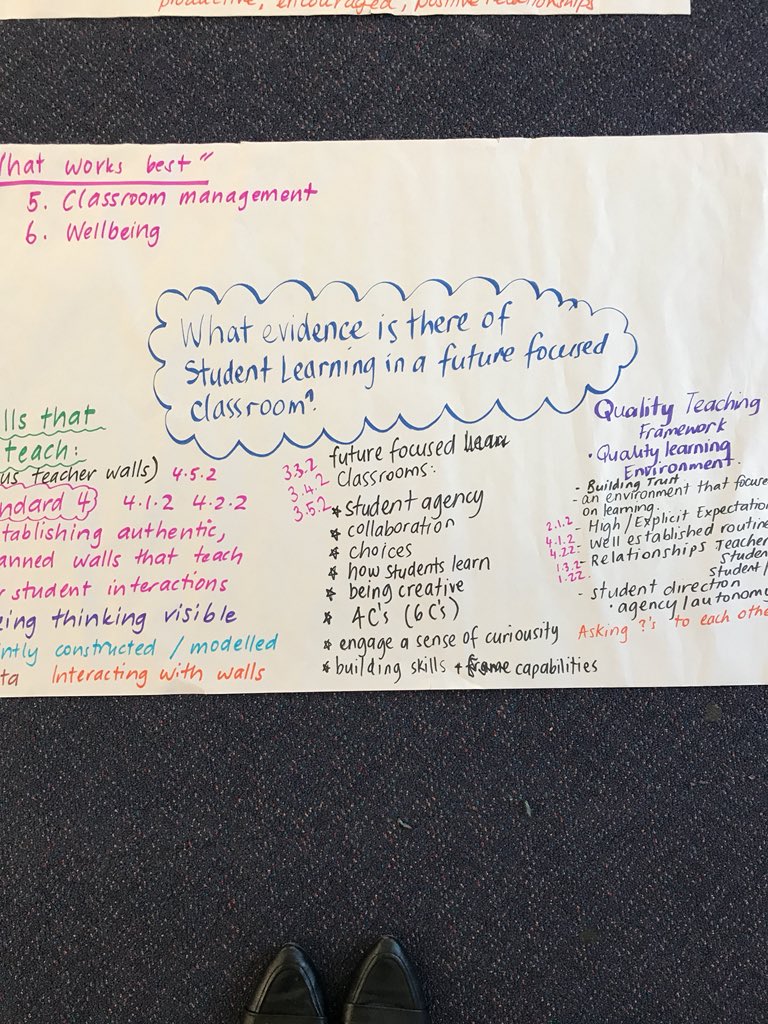 productive, encouraged, positive relationships
What works best"
5. Classroom management
6. Wellbeing
What evidence is there of
Student Learning in a future focused
classroom?
lls that
teach:
us teacher walls) 4.5.2
ndard 4 4.1.2 4.2.2
tablishing authentic,
anned walls that teach
r student interactions
ing thinking visible
intly constructed / modelled
ta Interacting with walls
3.3.2 future focused
3.4.2 Classrooms:
3.5.2 * student agency
* collaboration
* choices
* how students learn
* being creative
* 4C's (6C's)
* engage a sense of curiousity
* building skills + capabilities
Quality Teaching
Framework
• Quality learning
Environment.
- Building Trust
- an environment that focuse
on learning.
2.1.2 - High/Explicit Expectation
4.1.2 - Well established routine
4.2.2 - Relationships Teacher
1.3.2 Studen
1.2.2 student/
- student direction
• agency/autonomy
Asking ?'s to each othe